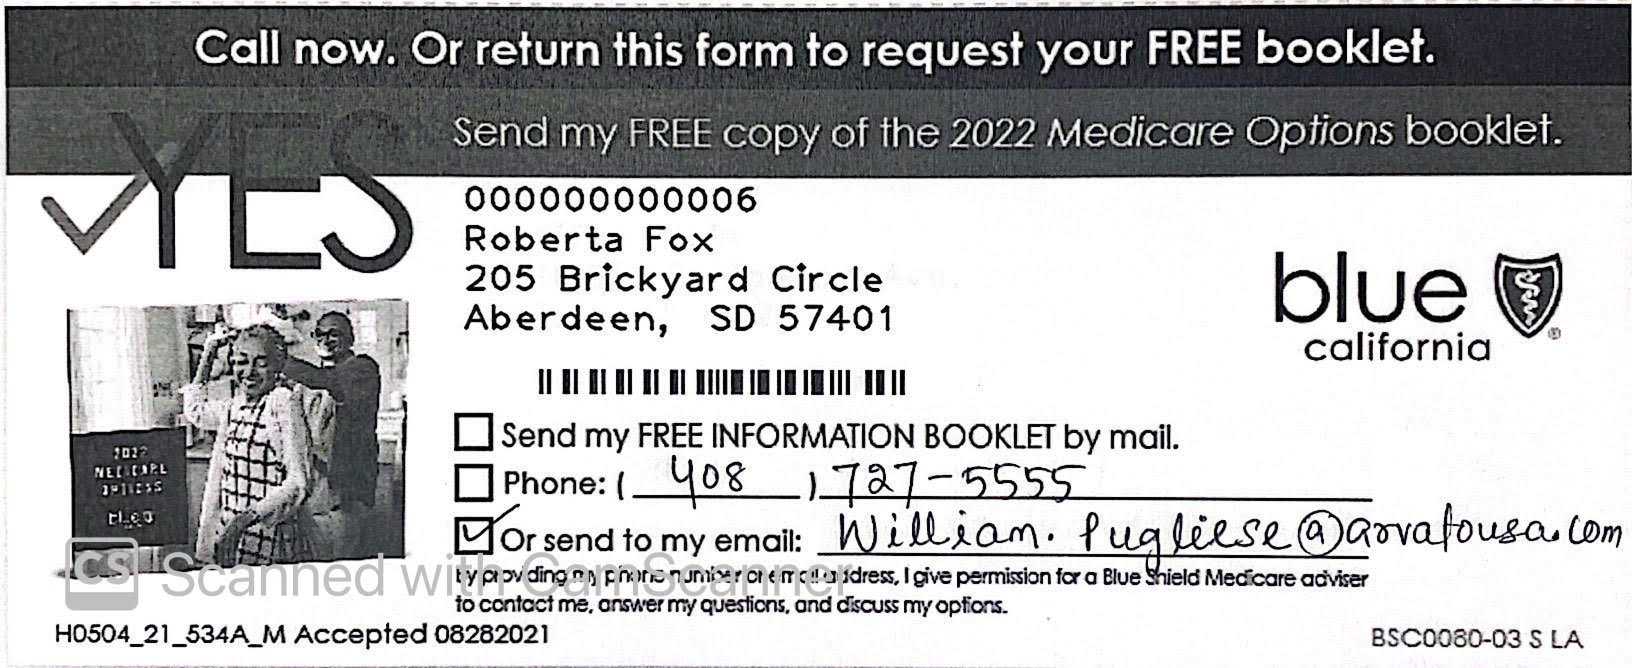 Call now. Or return this form to request your FREE booklet.
YES
Send my FREE copy of the 2022 Medicare Options booklet.
000000000006
Roberta Fox
205 Brickyard Circle
Aberdeen, SD 57401
blue
california
2022
MEDICARE
OPTIONS
Send my FREE INFORMATION BOOKLET by mail.
Phone: ( 408 ) 727-5555
Or send to my email: William.Pugliese@arvatousa.com
By providing my phone number or email address, I give permission for a Blue Shield Medicare adviser
to contact me, answer my questions, and discuss my options.
CS Scanned with CamScanner
H0504_21_534A_M Accepted 08282021
BSC0080-03 S LA